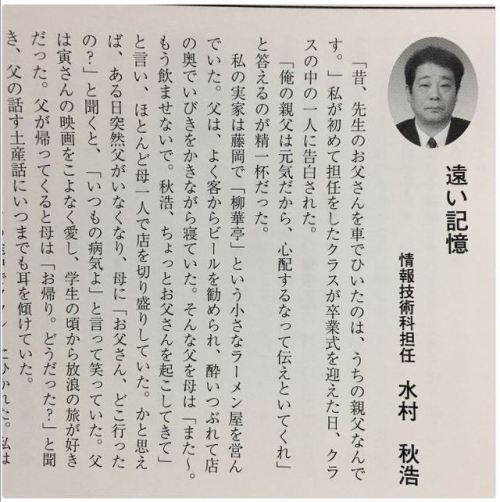 遠い記憶
情報技術科担任 水村 秋浩
「昔、先生のお父さんを車でひいたのは、うちの親父なんで
す。」私が初めて担任をしたクラスが卒業式を迎えた日、クラ
スの中の一人に告白された。
「俺の親父は元気だから、心配するなって伝えといてくれ」
と答えるのが精一杯だった。
私の実家は藤岡で「柳華亭」という小さなラーメン屋を営ん
でいた。父は、よく客からビールを勧められ、酔いつぶれて店
の奥でいびきをかきながら寝ていた。そんな父を母は「また〜。
もう飲ませないで。秋浩、ちょっとお父さんを起こしてきて」
と言い、ほとんど母一人で店を切り盛りしていた。かと思え
ば、ある日突然父がいなくなり、母に「お父さん、どこ行った
の？」と聞くと、「いつもの病気よ」と言って笑っていた。父
は寅さんの映画をこよなく愛し、学生の頃から放浪の旅が好き
だった。父が帰ってくると母は「お帰り。どうだった？」と聞
き、父の話す土産話にいつまでも耳を傾けていた。
ひかれた。私は